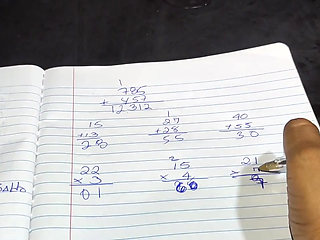 1
785
+ 457
12312
15
+13
28
1
27
+28
55
40
+55
30
22
× 3
01
2
15
× 4
60
21